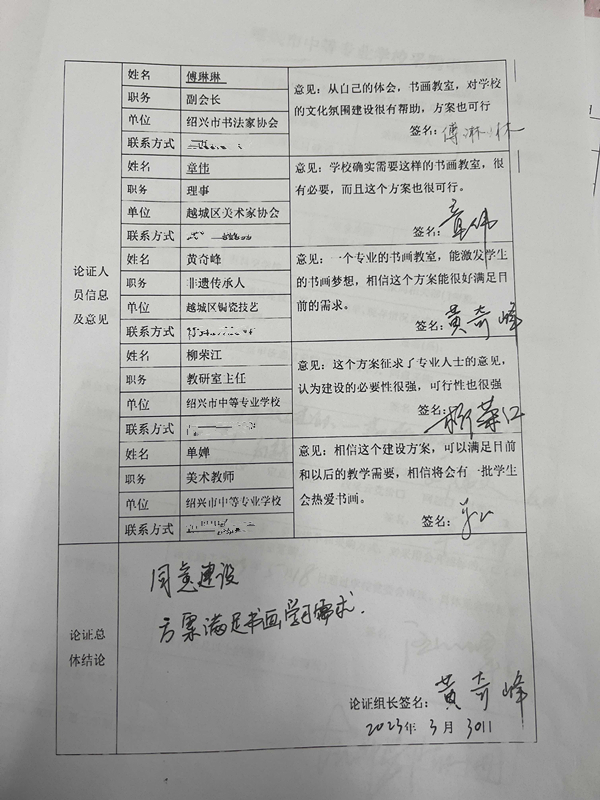 姓名 傅琳琳
职务 副会长
单位 绍兴市书法家协会
联系方式
意见：从自己的体会，书画教室，对学校
的文化氛围建设很有帮助，方案也可行
签名：傅琳琳
姓名 章伟
职务 理事
单位 越城区美术家协会
联系方式
意见：学校确实需要这样的书画教室，很
有必要，而且这个方案也很可行。
签名：章伟
论证人
员信息
及意见
姓名 黄奇峰
职务 非遗传承人
单位 越城区锔瓷技艺
联系方式
意见：一个专业的书画教室，能激发学生
的书画梦想，相信这个方案能很好满足目
前的需求。
签名：黄奇峰
姓名 柳荣江
职务 教研室主任
单位 绍兴市中等专业学校
联系方式
意见：这个方案征求了专业人士的意见，
认为建设的必要性很强，可行性也很强
签名：柳荣江
姓名 单婵
职务 美术教师
单位 绍兴市中等专业学校
联系方式
意见：相信这个建设方案，可以满足目前
和以后的教学需要，相信将会有一批学生
会热爱书画。
签名：
论证总
体结论
同意建设
方案满足书画学习需求.
论证组长签名：黄奇峰
2023年 3月 30日